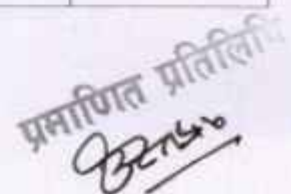 प्रमाणित प्रतिलिपि